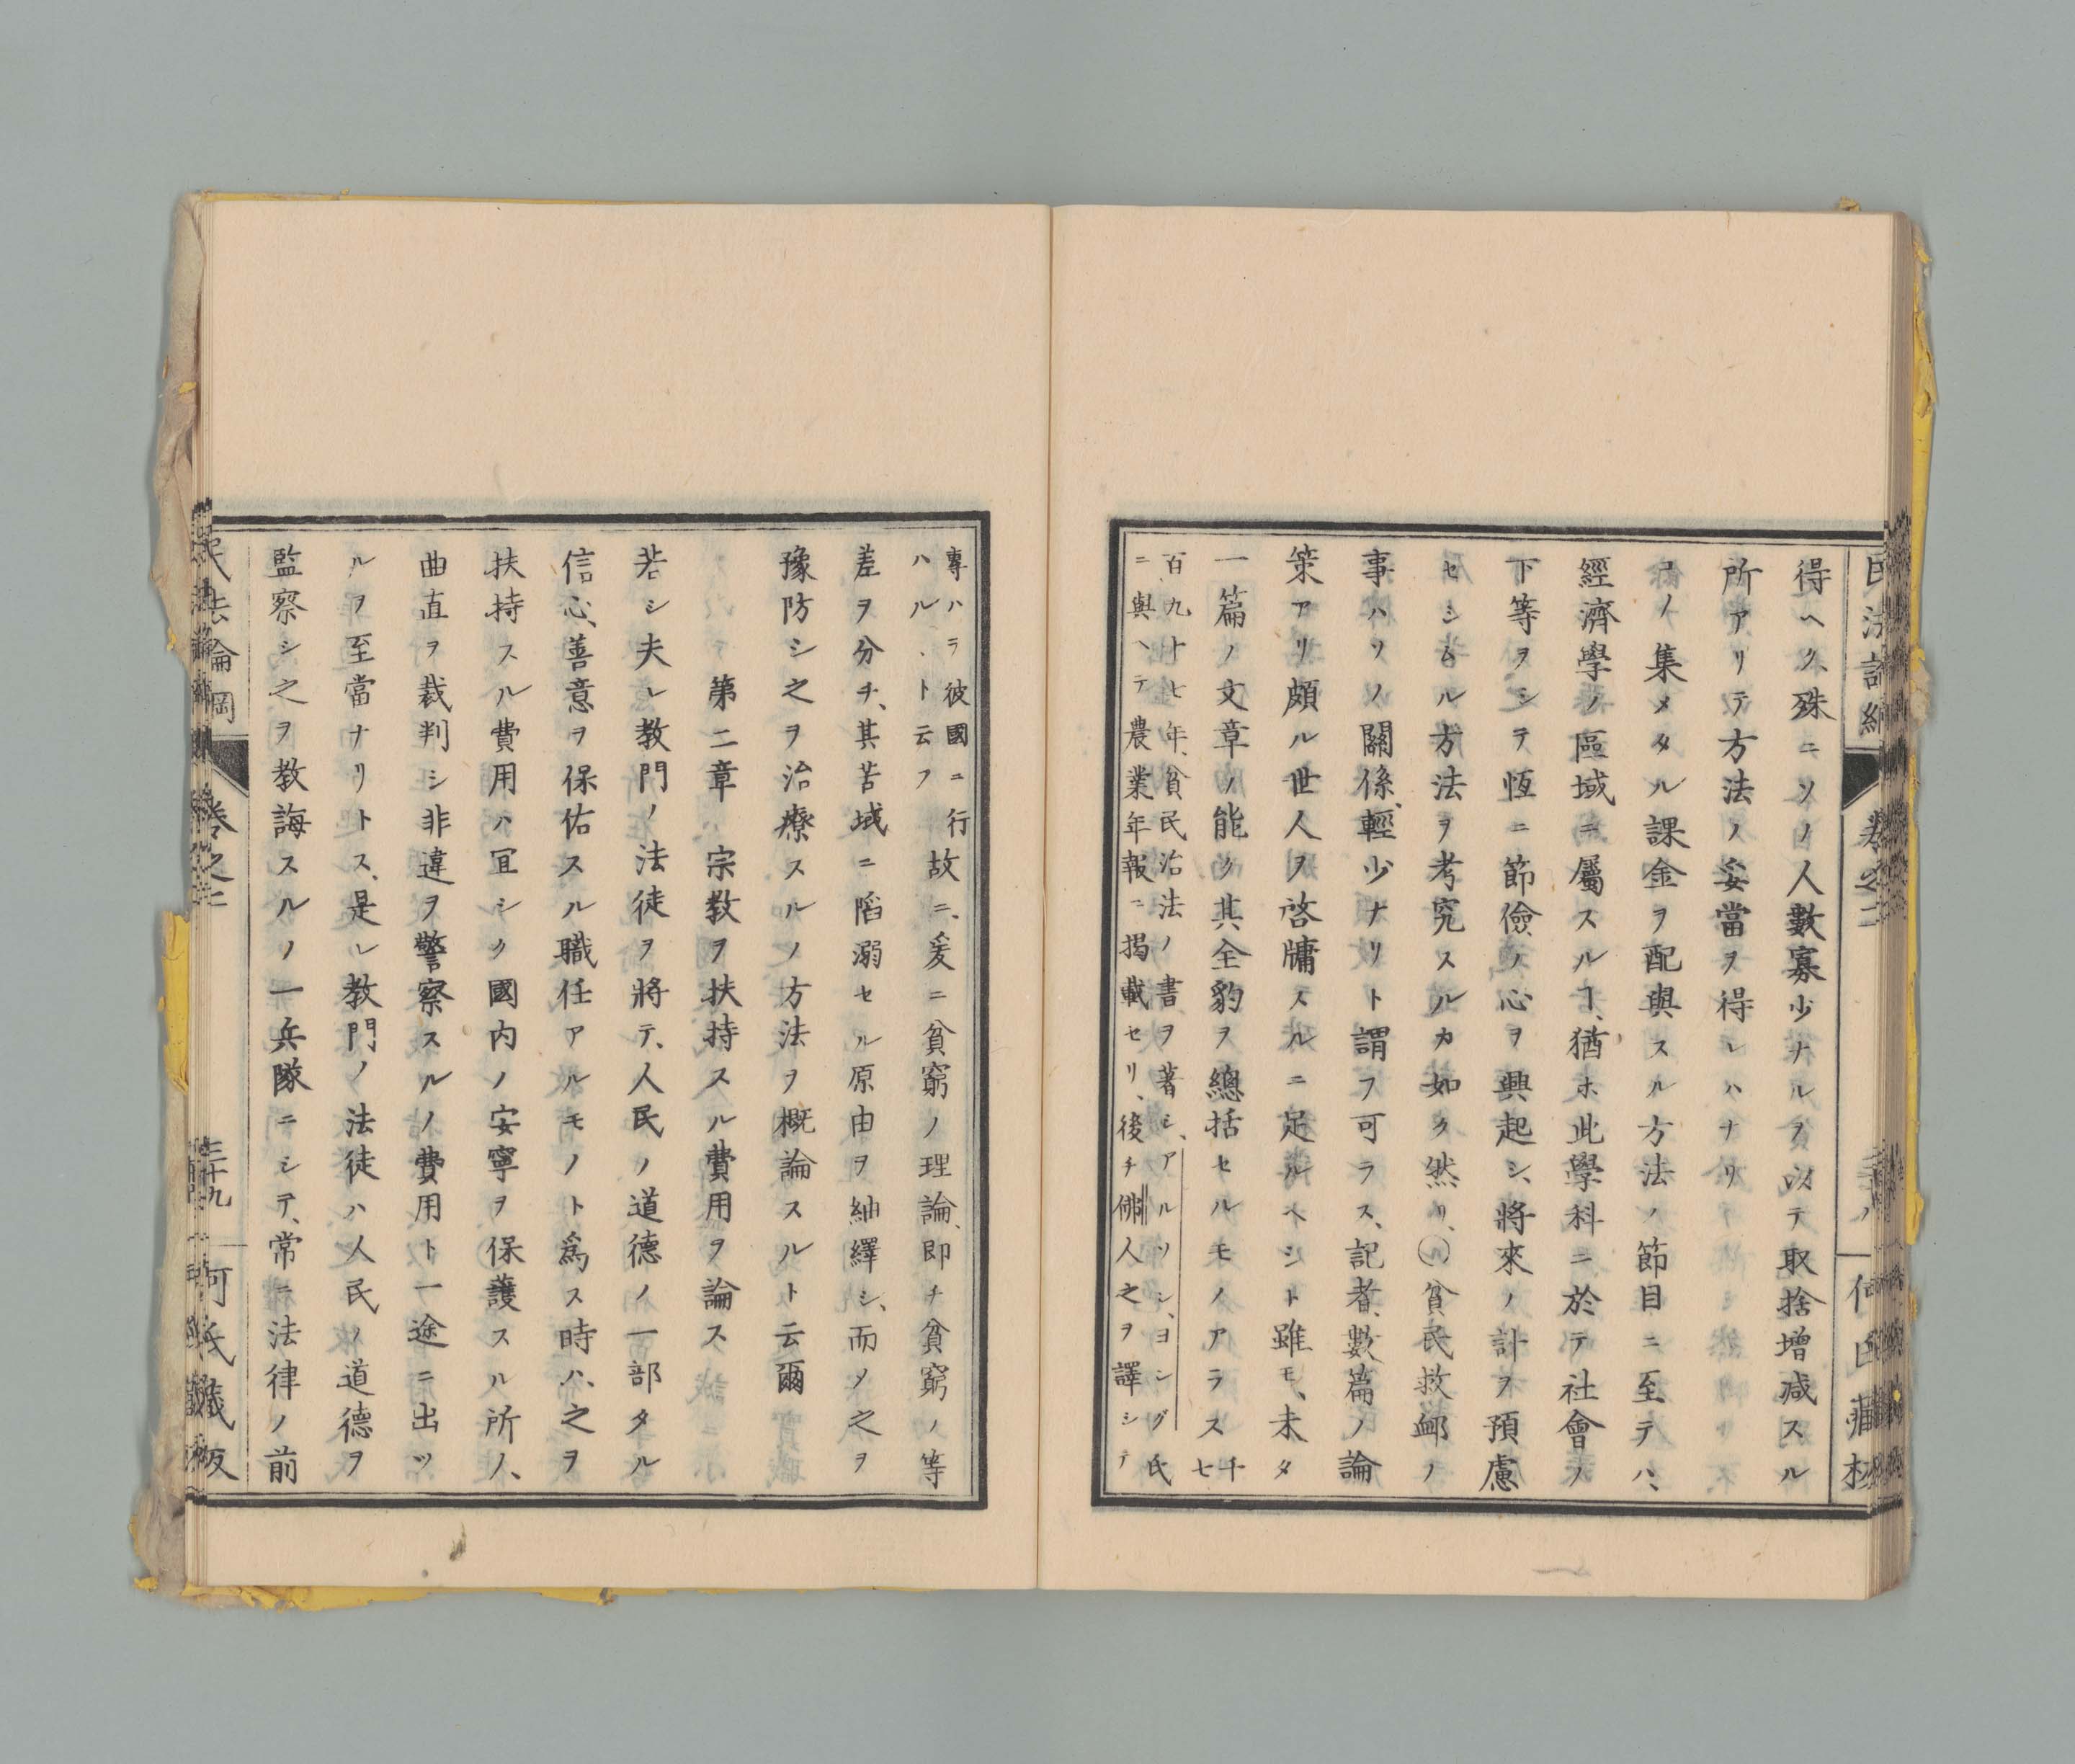 民法論綱
卷之二
得ヘク、殊ニソノ人數寡少ナルヲ以テ取捨增减スル
所アリテ方法ノ妥當ヲ得レハナリ
コノ集メタル課金ヲ配與スル方法ノ節目ニ至テハ、
經濟學ノ區域ニ屬スルヿ、猶ホ此學科ニ於テ社會ノ
下等ヲシテ恆ニ節儉ノ心ヲ興起シ、將來ノ計ヲ預慮
セシムル方法ヲ考究スルカ如ク然リ、貧民救邺ノ
事ハソノ關係輕少ナリト謂フ可ラス、記者數篇ノ論
策アリ頗ル世人ヲ啓牗スルニ足ルヘシト雖モ、未タ
一篇ノ文章ノ能ク其全豹ヲ總括セルモノアラス千
七
百九十七年、貧民治法ノ書ヲ著シ、アルソシ、ヨシング氏
ニ與ヘテ農業年報ニ揭載セリ、後チ佛人之ヲ譯シテ
專ハラ彼國ニ行
ハル、ト云フ
故ニ、爰ニ貧窮ノ理論、即チ貧窮ノ等
差ヲ分チ、其苦域ニ陷溺セル原由ヲ紬繹シ、而メ之ヲ
豫防シ之ヲ治療スルノ方法ヲ概論スルト云爾
第二章 宗教ヲ扶持スル費用ヲ論ス
若シ夫レ教門ノ法徒ヲ將テ、人民ノ道德ノ一部タル
信心、善意ヲ保佑スル職任アルモノト爲ス時ハ、之ヲ
扶持スル費用ハ宜シク國内ノ安寧ヲ保護スル所ノ、
曲直ヲ裁判シ非違ヲ警察スルノ費用ト一途ニ出ツ
ルヲ至當ナリトス、是レ教門ノ法徒ハ人民ノ道德ヲ
監察シ之ヲ教誨スルノ一兵隊ニシテ、常ニ法律ノ前
民法論綱
卷之二
三十九
何氏藏板